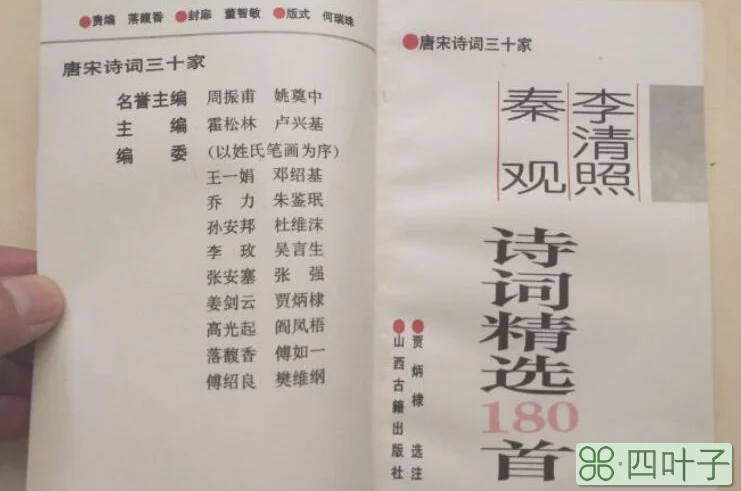 ●责编 落馥香 ●封扉 董智敏 ●版式 何瑞珠
唐宋诗词三十家
名誉主编 周振甫 姚奠中
主编 霍松林 卢兴基
编委 (以姓氏笔画为序)
王一娟 邓绍基
乔力 朱鉴珉
孙安邦 杜维沫
李玫 吴言生
张安塞 张强
姜剑云 贾炳棣
高光起 阎凤梧
落馥香 傅如一
傅绍良 樊维纲
●唐宋诗词三十家
李清照
秦观
诗词精选180首
●贾炳棣 选注
●山西古籍出版社
四叶子